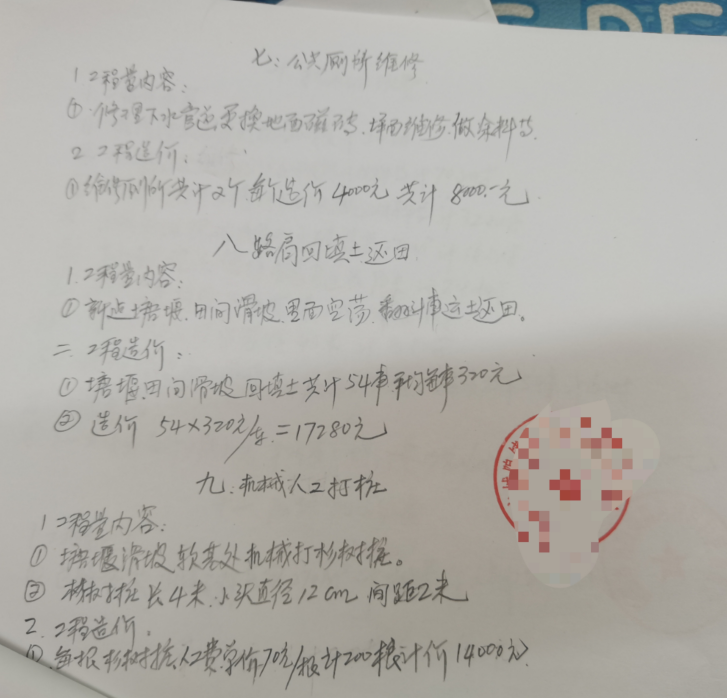 七：公共厕所维修
1 工程量内容：
① 修理下水管道更换地面磁砖、坪面维修、做涂料等
2 工程造价：
① 维修厕所共计2个每个造价4000元 共计8000.-元
八 路高回填土还田
1. 工程量内容：
① 新点塘堰、田间滑坡、里面空荡、翻斗车运土还田。
二 工程造价：
① 塘堰田间滑坡回填土共计54車平均每車320元
② 造价 54×320元/车=17280元
九：机械人工打桩
1 工程量内容：
① 塘堰滑坡软基处机械打杉树桩。
② 杉树桩长4米、小头直径12cm 间距2米
2. 工程造价。
① 每根杉树桩人工费单价70元/根计200根计价14000元